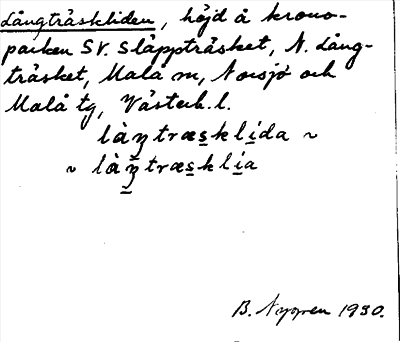 Långträskliden, höjd å krono-
parken SV. Släppträsket, N. Lång-
träsket, Malå sn, Norsjö och
Malå tg, Västerb. l.
làŋtræsklida ~
~ làŋtræsklia
B. Nygren 1930.